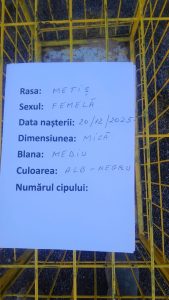 Rasa: METIȘ
Sexul: FEMELĂ
Data nașterii: 20/12/2025
Dimensiunea: MICĂ
Blana: MEDIU
Culoarea: ALB-NEGRU
Numărul cipului: